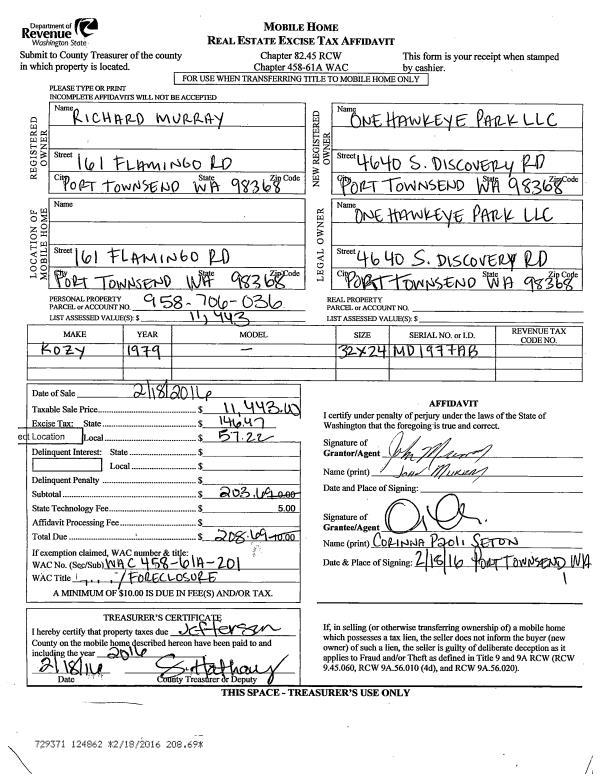 Department of
Revenue
Washington State
MOBILE HOME
REAL ESTATE EXCISE TAX AFFIDAVIT
Submit to County Treasurer of the county
in which property is located.
Chapter 82.45 RCW
Chapter 458-61A WAC
This form is your receipt when stamped
by cashier.
FOR USE WHEN TRANSFERRING TITLE TO MOBILE HOME ONLY
PLEASE TYPE OR PRINT
INCOMPLETE AFFIDAVITS WILL NOT BE ACCEPTED
REGISTERED
OWNER
Name RICHARD MURRAY
Street 161 FLAMINGO RD
City State Zip Code
PORT TOWNSEND WA 98368
NEW REGISTERED
OWNER
Name
ONE HAWKEYE PARK LLC
Street 4640 S. DISCOVERY RD
City State Zip Code
PORT TOWNSEND WA 98368
LOCATION OF
MOBILE HOME
Name
Street 161 FLAMINGO RD
City State Zip Code
PORT TOWNSEND WA 98368
LEGAL OWNER
Name
ONE HAWKEYE PARK LLC
Street 4640 S. DISCOVERY RD
City State Zip Code
PORT TOWNSEND WA 98368
PERSONAL PROPERTY
PARCEL or ACCOUNT NO. 958-706-036
LIST ASSESSED VALUE(S): $ 11,443
REAL PROPERTY
PARCEL or ACCOUNT NO.
LIST ASSESSED VALUE(S): $
MAKE YEAR MODEL SIZE SERIAL NO. or I.D. REVENUE TAX CODE NO.
KOZY 1979 — 32X24 MD1977AB
Date of Sale 2/18/2016
Taxable Sale Price $ 11,443.00
Excise Tax: State $ 146.47
ect Location Local $ 57.22
Delinquent Interest: State $
Local $
Delinquent Penalty $
Subtotal $ 203.69 0.00
State Technology Fee $ 5.00
Affidavit Processing Fee $
Total Due $ 208.69 10.00
If exemption claimed, WAC number & title:
WAC No. (Sec/Sub) WAC 458-61A-201
WAC Title /FORECLOSURE
A MINIMUM OF $10.00 IS DUE IN FEE(S) AND/OR TAX.
AFFIDAVIT
I certify under penalty of perjury under the laws of the State of
Washington that the foregoing is true and correct.
Signature of
Grantor/Agent John Murray
Name (print) John Murray
Date and Place of Signing:
Signature of
Grantee/Agent
Name (print) CORINNA PAOLI SETON
Date & Place of Signing: 2/18/16 PORT TOWNSEND WA
TREASURER'S CERTIFICATE
I hereby certify that property taxes due Jefferson
County on the mobile home described hereon have been paid to and
including the year 2016
2/18/16 S. Hathaway
Date County Treasurer or Deputy
If, in selling (or otherwise transferring ownership of) a mobile home
which possesses a tax lien, the seller does not inform the buyer (new
owner) of such a lien, the seller is guilty of deliberate deception as it
applies to Fraud and/or Theft as defined in Title 9 and 9A RCW (RCW
9.45.060, RCW 9A.56.010 (4d), and RCW 9A.56.020).
THIS SPACE - TREASURER'S USE ONLY
729371 124862 *2/18/2016 208.69*